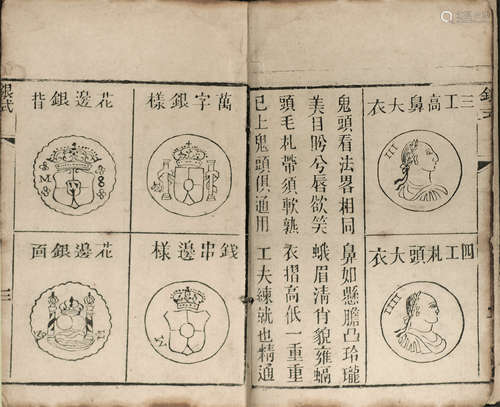 三工高鼻大衣
III
四工札頭大衣
IIII
鬼頭看法畧相同 鼻如懸膽凸玲瓏
美目盻兮唇欲笑 蛾眉清肖貌雍蝺
頭毛札帶須軟熟 衣摺高低一重重
已上鬼頭俱通用 工夫練就也精通
萬字銀樣
錢串邊樣
花邊銀昔
M 8
花邊銀面
銀式
三